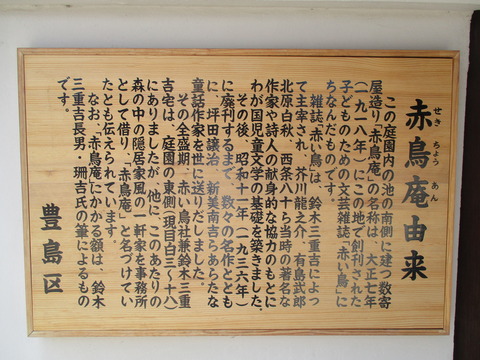 赤鳥庵由来
せき ちょう あん
この庭園内の池の南側に建つ数寄
屋造り「赤鳥庵」の名称は、大正七年
(一九一八年)にこの地で創刊された
子どものための文芸雑誌「赤い鳥」に
ちなんだものです。
雑誌「赤い鳥」は、鈴木三重吉によっ
て主宰され、芥川龍之介、有島武郎
北原白秋、西条八十ら当時の著名な
作家や詩人の献身的な協力のもとに
わが国児童文学の基礎を築きました。
その後、昭和十一年(一九三六年)
に廃刊するまで、数々の名作ととも
に、坪田譲治、新美南吉らあらたな
童話作家を世に送りだしました。
その全盛期、赤い鳥社兼鈴木三重
吉宅は、庭園の東側(現目白三〜十八)
にありましたが、他に、このあたりの
森の中の隠居家風の一軒家を事務所
として借り、「赤鳥庵」と名づけてい
たとも伝えられています。
なお、「赤鳥庵」にかかる額は、鈴木
三重吉長男・珊吉氏の筆によるもの
です。
豊島区